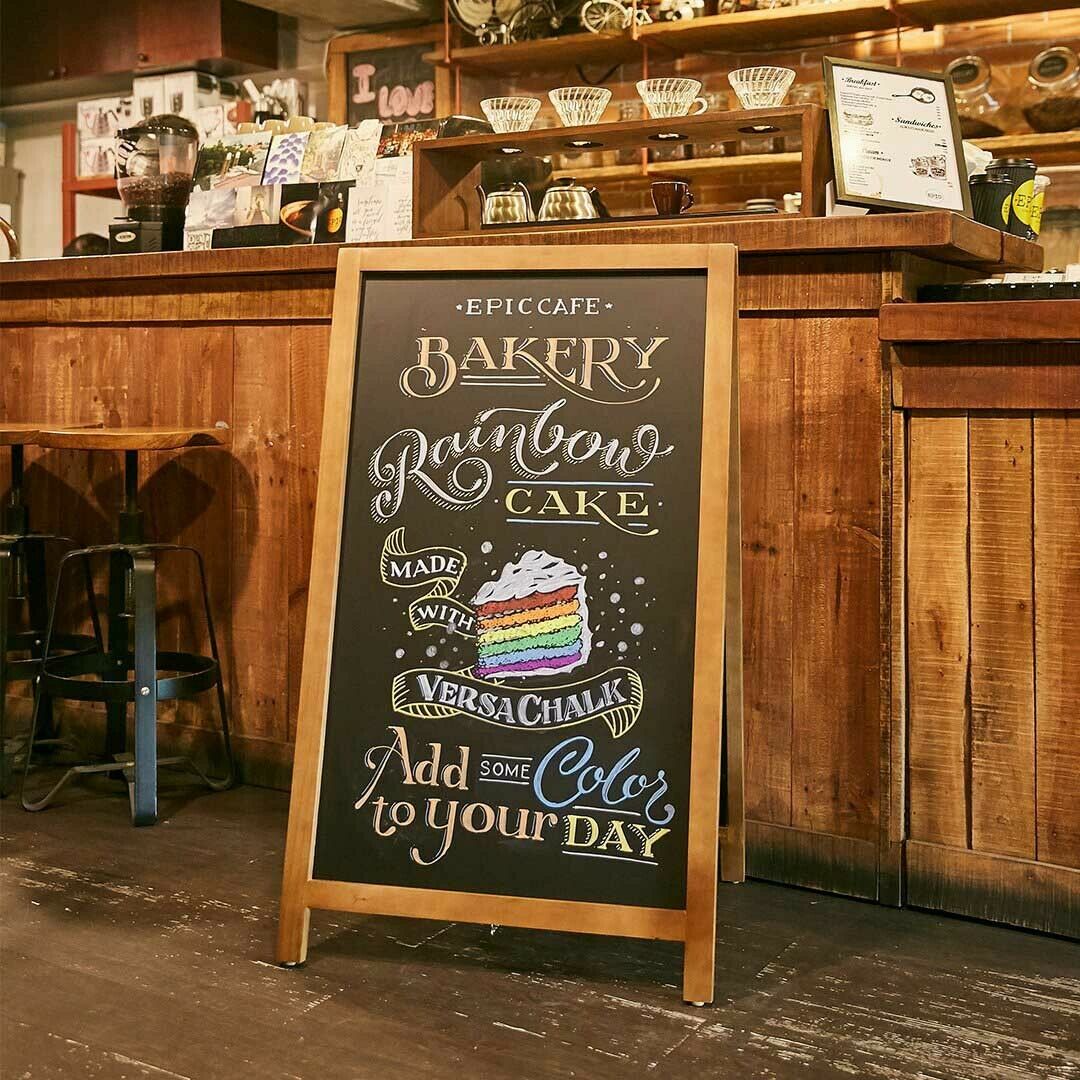 I
LOVE
Breakfast
Sandwiches
EPIC
EPIC CAFE
BAKERY
Rainbow
CAKE
MADE
WITH
VERSACHALK
Add SOME Color
to your DAY